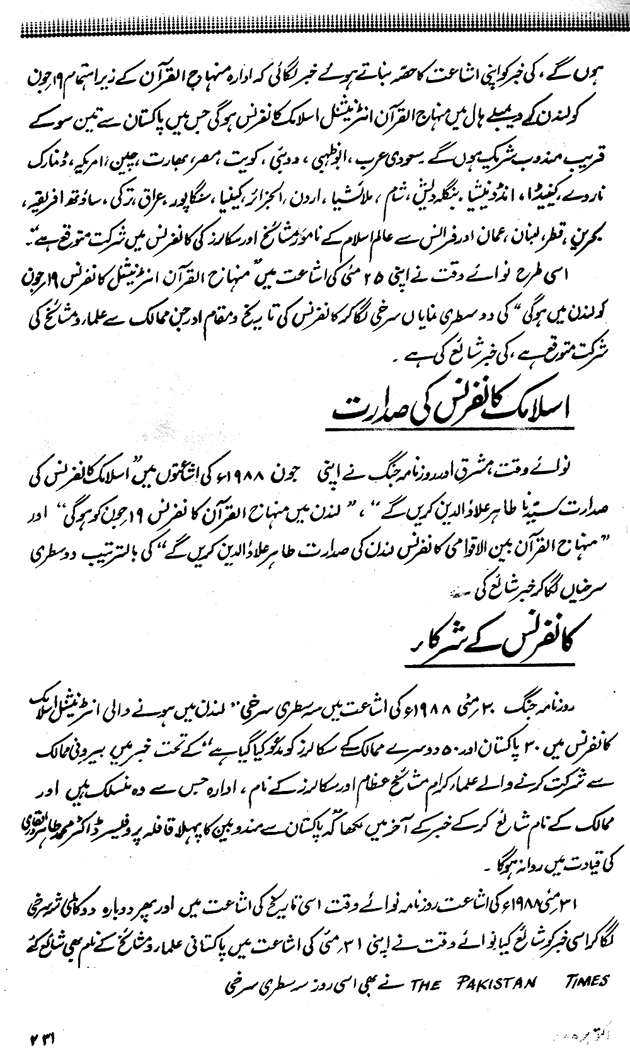 ہوں گے، کی خبر کو اپنی اشاعت کا حصہ بناتے ہوئے خبر لگائی کہ ادارہ منہاج القرآن کے زیر اہتمام ۱۹ جون
کو لندن کے ویمبلے ہال میں منہاج القرآن انٹرنیشنل اسلامک کانفرنس ہوگی جس میں پاکستان سے تین سو کے
قریب مندوب شریک ہوں گے سعودی عرب، ابوظہبی، دوبئی، کویت، مصر، بھارت، چین، امریکہ، ڈنمارک
ناروے، کینیڈا، انڈونیشیا، بنگلہ دیش، شام، ملائشیا، اردن، الجزائر، کینیا، سنگاپور، عراق، ترکی، ساؤتھ افریقہ،
بحرین، قطر، لبنان، عمان اور فرانس سے عالم اسلام کے نامور مشائخ اور سکالرز کی کانفرنس میں شرکت متوقع ہے"۔
اسی طرح نوائے وقت نے اپنی ۲۵ مئی کی اشاعت میں "منہاج القرآن انٹرنیشنل کانفرنس ۱۹ جون
کو لندن میں ہوگی" کی دو سطری نمایاں سرخی لگا کر کانفرنس کی تاریخ و مقام اور جن ممالک سے علماء و مشائخ کی
شرکت متوقع ہے، کی خبر شائع کی ہے۔
اسلامک کانفرنس کی صدارت
نوائے وقت، مشرق اور روزنامہ جنگ نے اپنی جون ۱۹۸۸ء کی اشاعتوں میں "اسلامک کانفرنس کی
صدارت سیدنا طاہر علاؤالدین کریں گے"، "لندن میں منہاج القرآن کانفرنس ۱۹ جون کو ہوگی" اور
"منہاج القرآن بین الاقوامی کانفرنس لندن کی صدارت طاہر علاؤالدین کریں گے" کی بالترتیب دو سطری
سرخیاں لگا کر خبر شائع کی۔
کانفرنس کے شرکاء
روزنامہ جنگ ۲۰ مئی ۱۹۸۸ء کی اشاعت میں سہ سطری سرخی "لندن میں ہونے والی انٹرنیشنل اسلامک
کانفرنس میں ۳۰ پاکستان اور ۵۰ دوسرے ممالک کے سکالرز کو مدعو کیا گیا ہے" کے تحت خبر میں بیرونی ممالک
سے شرکت کرنے والے علماء کرام مشائخ عظام اور سکالرز کے نام، ادارہ جس سے وہ منسلک ہیں اور
ممالک کے نام شائع کر کے خبر کے آخر میں لکھا "کہ پاکستان سے مندوبین کا پہلا قافلہ پروفیسر ڈاکٹر محمد طاہر القادری
کی قیادت میں روانہ ہوگا۔
۳۱ مئی ۱۹۸۸ء کی اشاعت روزنامہ نوائے وقت اسی تاریخ کی اشاعت میں اور پھر دوبارہ دو کالمی سرخی
لگا کر اسی خبر کو شائع کیا نوائے وقت نے اپنی ۳۱ مئی کی اشاعت میں پاکستانی علماء و مشائخ کے نام بھی شائع کئے
THE PAKISTAN TIMES نے بھی اسی روز سہ سطری سرخی
۲۳۱